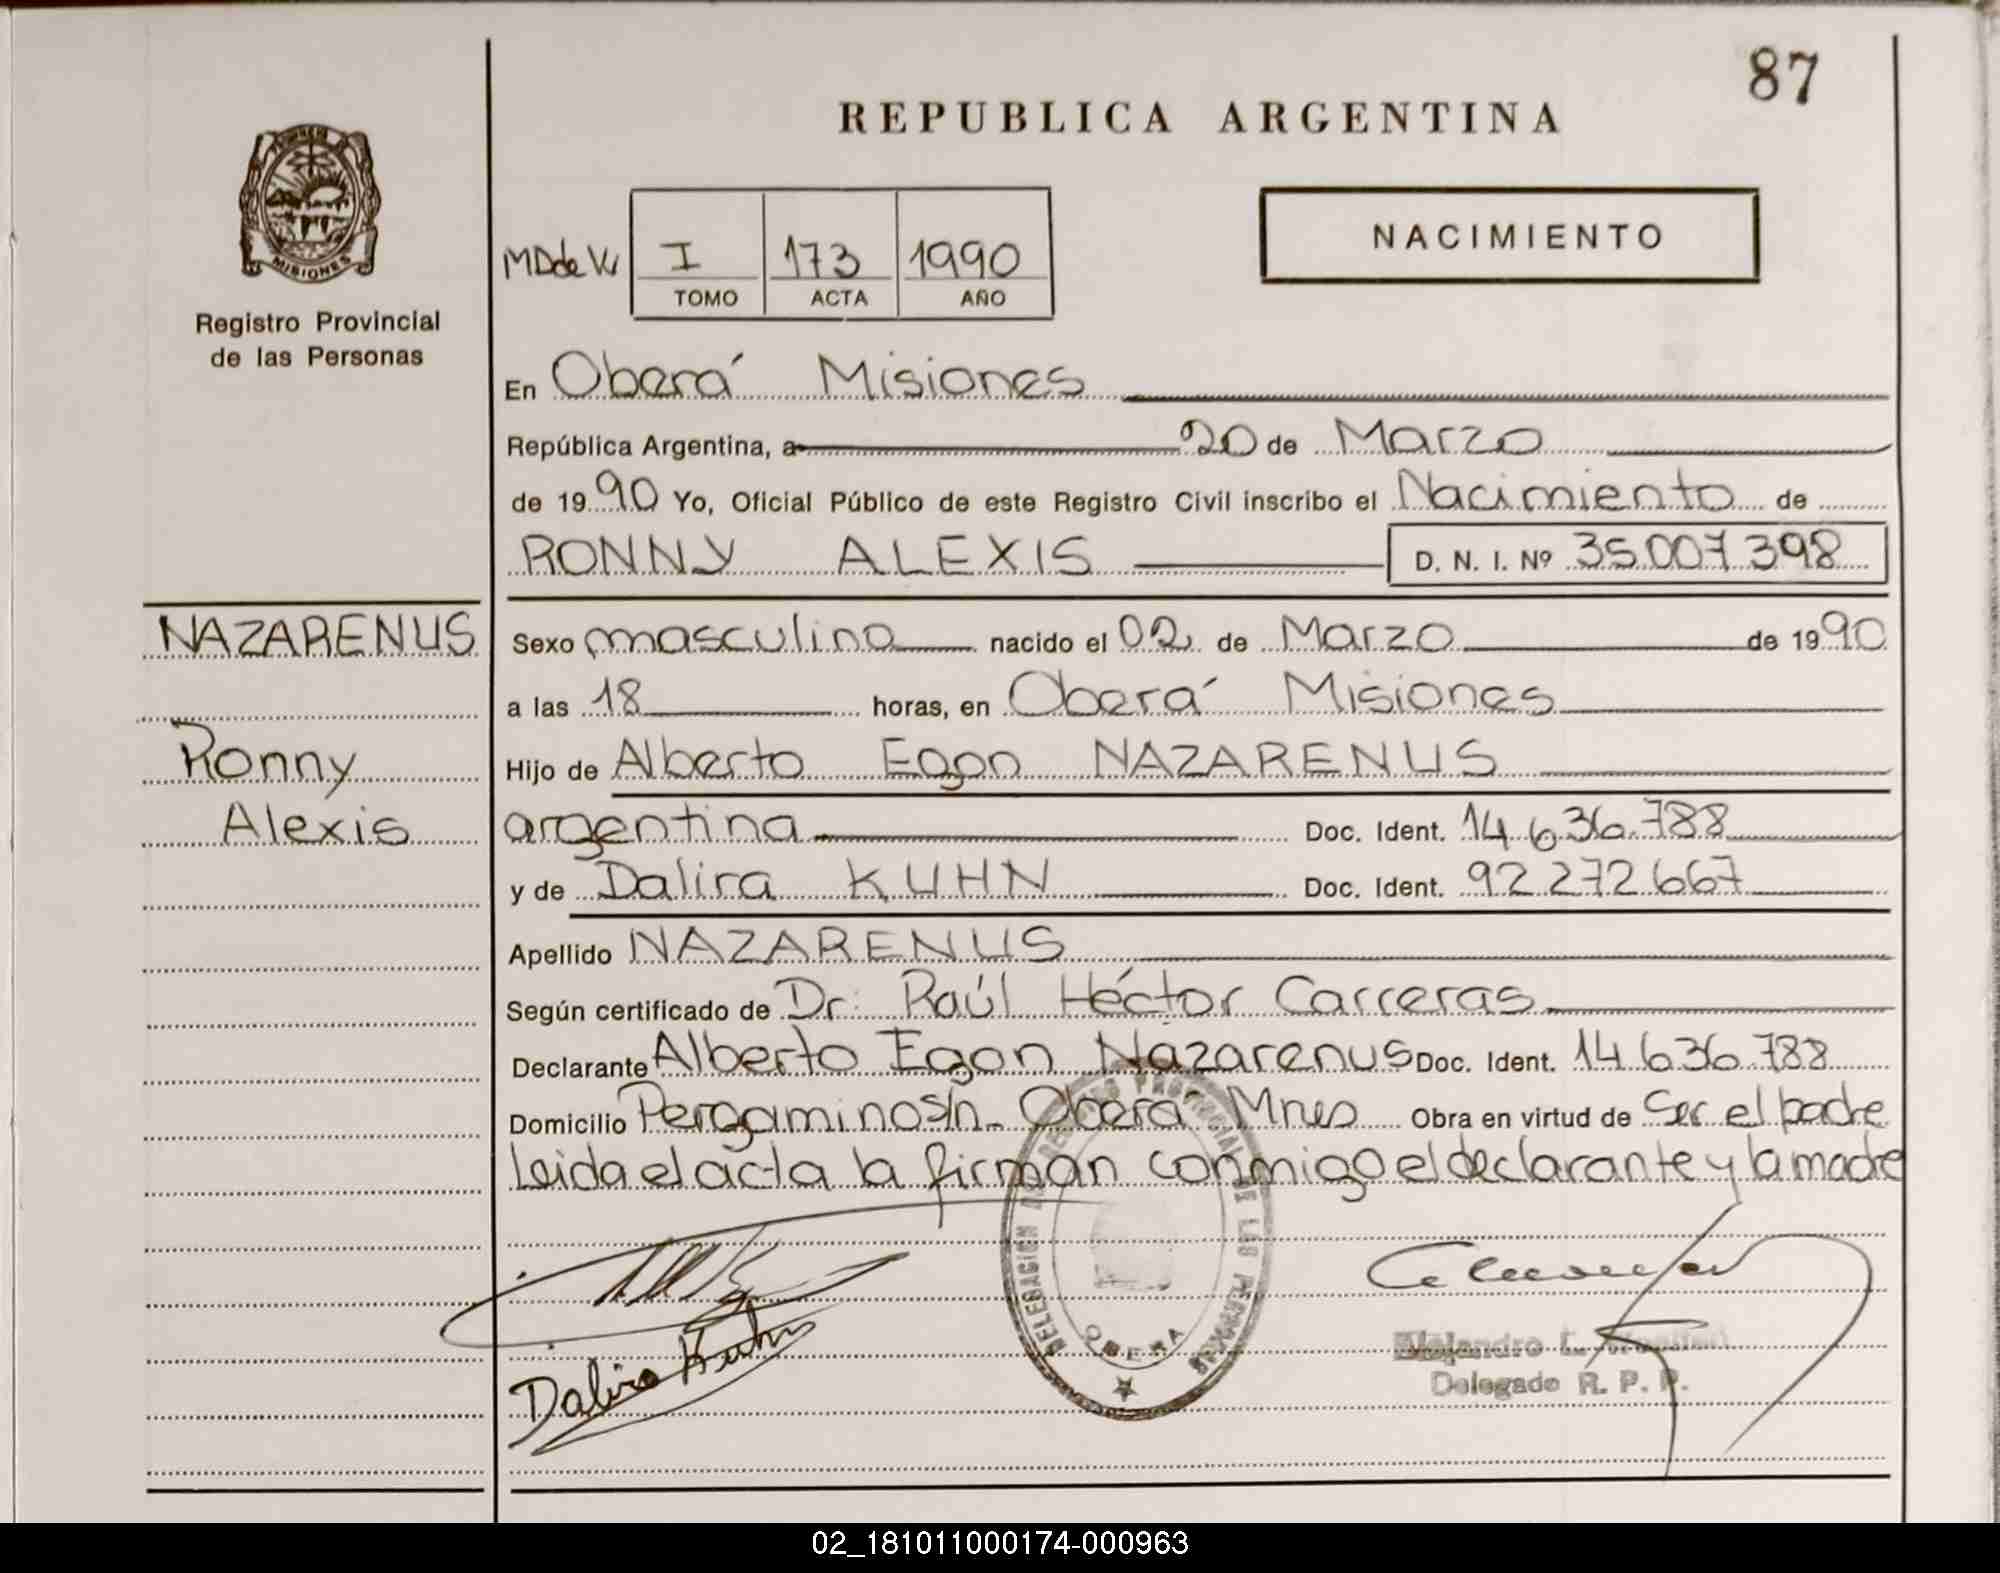 87
REPUBLICA ARGENTINA
MISIONES
Registro Provincial
de las Personas
NACIMIENTO
I 173 1990
TOMO ACTA AÑO
En Oberá Misiones
República Argentina, a 20 de Marzo
de 1990 Yo, Oficial Público de este Registro Civil inscribo el Nacimiento de
RONNY ALEXIS D. N. I. Nº 35.007.398
NAZARENUS
Ronny
Alexis
Sexo masculino nacido el 02 de Marzo de 1990
a las 18 horas, en Oberá Misiones
Hijo de Alberto Egon NAZARENUS
argentina Doc. Ident. 14.636.788
y de Dalira KUHN Doc. Ident. 92 272 667
Apellido NAZARENUS
Según certificado de Dr: Raúl Héctor Carreras
Declarante Alberto Egon Nazarenus Doc. Ident. 14.636.788
Domicilio Pergamino s/n - Oberá Mnes Obra en virtud de Ser el padre
Leida el acta la firman conmigo el declarante y la madre
DELEGACION REGISTRO PROVINCIAL DE LAS PERSONAS
OBERA
Dalira Kuhn
Alejandro L.
Delegado R. P. P.
02_181011000174-000963